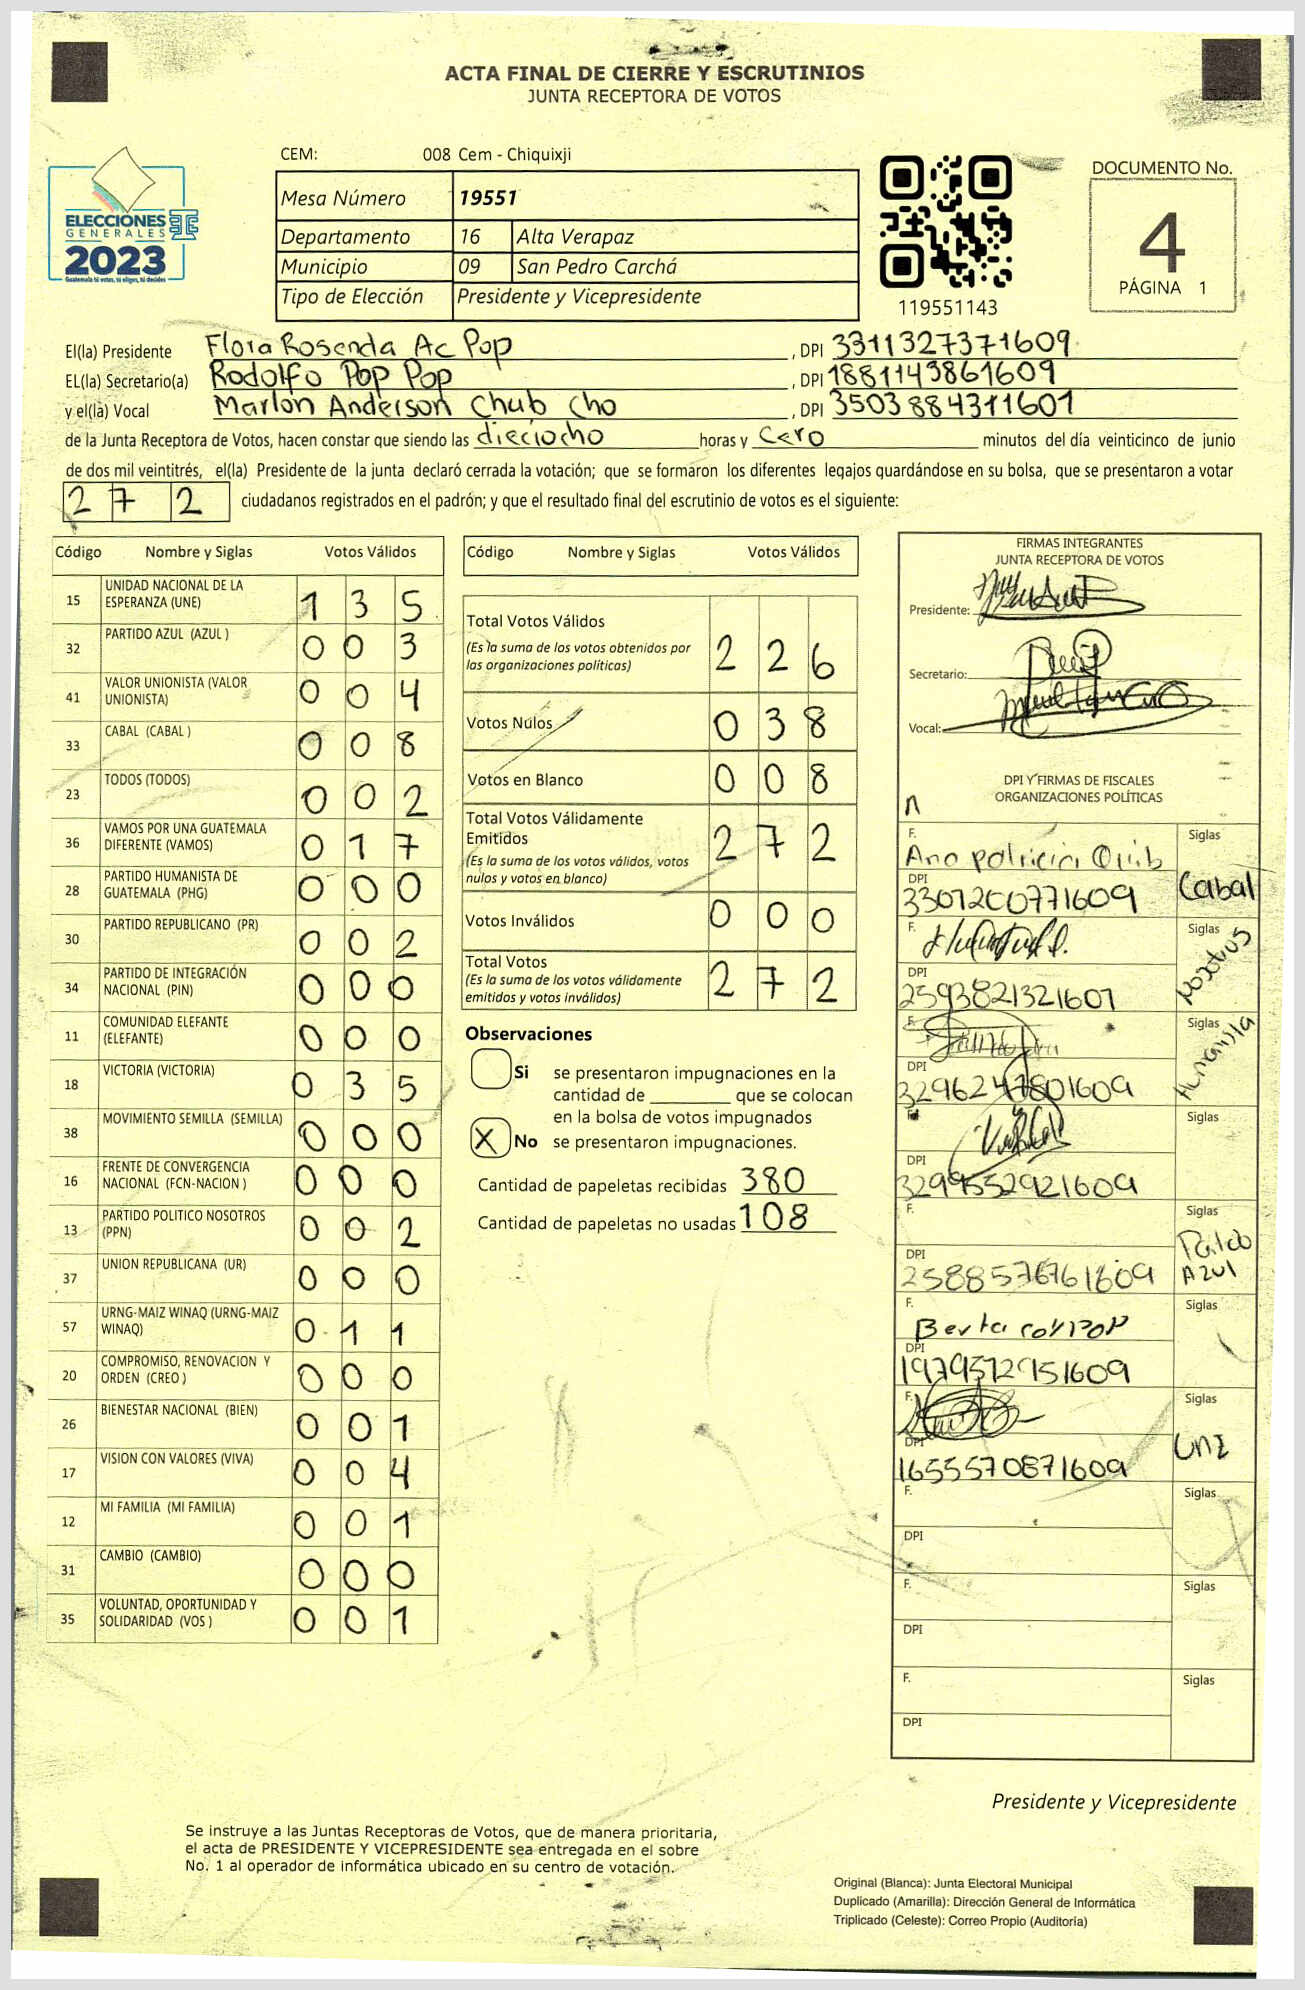 ACTA FINAL DE CIERRE Y ESCRUTINIOS
JUNTA RECEPTORA DE VOTOS
CEM: 008 Cem - Chiquixji
ELECCIONES
GENERALES
2023
Guatemala tú votas, tú eliges, tú decides
Mesa Número 19551
Departamento 16 Alta Verapaz
Municipio 09 San Pedro Carchá
Tipo de Elección Presidente y Vicepresidente
119551143
DOCUMENTO No.
4
PÁGINA 1
El(la) Presidente Flora Rosenda Ac Pop, DPI 3311327371609
EL(la) Secretario(a) Rodolfo Pop Pop, DPI 1881143861609
y el(la) Vocal Marlon Anderson Chub Cho, DPI 3503884311601
de la Junta Receptora de Votos, hacen constar que siendo las dieciocho horas y cero minutos del día veinticinco de junio
de dos mil veintitrés, el(la) Presidente de la junta declaró cerrada la votación; que se formaron los diferentes legajos quardándose en su bolsa, que se presentaron a votar
272 ciudadanos registrados en el padrón; y que el resultado final del escrutinio de votos es el siguiente:
Código Nombre y Siglas Votos Válidos
15 UNIDAD NACIONAL DE LA ESPERANZA (UNE) 1 3 5
32 PARTIDO AZUL (AZUL ) 0 0 3
41 VALOR UNIONISTA (VALOR UNIONISTA) 0 0 4
33 CABAL (CABAL ) 0 0 8
23 TODOS (TODOS) 0 0 2
36 VAMOS POR UNA GUATEMALA DIFERENTE (VAMOS) 0 1 7
28 PARTIDO HUMANISTA DE GUATEMALA (PHG) 0 0 0
30 PARTIDO REPUBLICANO (PR) 0 0 2
34 PARTIDO DE INTEGRACIÓN NACIONAL (PIN) 0 0 0
11 COMUNIDAD ELEFANTE (ELEFANTE) 0 0 0
18 VICTORIA (VICTORIA) 0 3 5
38 MOVIMIENTO SEMILLA (SEMILLA) 0 0 0
16 FRENTE DE CONVERGENCIA NACIONAL (FCN-NACION ) 0 0 0
13 PARTIDO POLITICO NOSOTROS (PPN) 0 0 2
37 UNION REPUBLICANA (UR) 0 0 0
57 URNG-MAIZ WINAQ (URNG-MAIZ WINAQ) 0 1 1
20 COMPROMISO, RENOVACION Y ORDEN (CREO ) 0 0 0
26 BIENESTAR NACIONAL (BIEN) 0 0 1
17 VISION CON VALORES (VIVA) 0 0 4
12 MI FAMILIA (MI FAMILIA) 0 0 1
31 CAMBIO (CAMBIO) 0 0 0
35 VOLUNTAD, OPORTUNIDAD Y SOLIDARIDAD (VOS ) 0 0 1
Código Nombre y Siglas Votos Válidos
Total Votos Válidos 2 2 6
(Es la suma de los votos obtenidos por
las organizaciones políticas)
Votos Nulos 0 3 8
Votos en Blanco 0 0 8
Total Votos Válidamente
Emitidos 2 7 2
(Es la suma de los votos válidos, votos
nulos y votos en blanco)
Votos Inválidos 0 0 0
Total Votos 2 7 2
(Es la suma de los votos válidamente
emitidos y votos inválidos)
Observaciones
Si se presentaron impugnaciones en la
cantidad de ________ que se colocan
en la bolsa de votos impugnados
X No se presentaron impugnaciones.
Cantidad de papeletas recibidas 380
Cantidad de papeletas no usadas 108
FIRMAS INTEGRANTES
JUNTA RECEPTORA DE VOTOS
Presidente:
Secretario:
Vocal:
DPI Y FIRMAS DE FISCALES
ORGANIZACIONES POLÍTICAS
F. Ana patricia Siglas
DPI 3301200771609 Cabal
F. Siglas
DPI 2593821321607 Nosotros
F. Siglas
DPI 3296247801609 Humanista
F. Siglas
DPI 3299552921609
F. Siglas
DPI 2588576761609 Azul
F. Berta Siglas
DPI 1979572951609
F. Siglas
DPI 1655570871609 UNE
F. Siglas
DPI
F. Siglas
DPI
F. Siglas
DPI
Presidente y Vicepresidente
Se instruye a las Juntas Receptoras de Votos, que de manera prioritaria,
el acta de PRESIDENTE Y VICEPRESIDENTE sea entregada en el sobre
No. 1 al operador de informática ubicado en su centro de votación.
Original (Blanca): Junta Electoral Municipal
Duplicado (Amarilla): Dirección General de Informática
Triplicado (Celeste): Correo Propio (Auditoría)